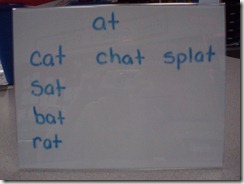 at
cat chat splat
sat
bat
rat